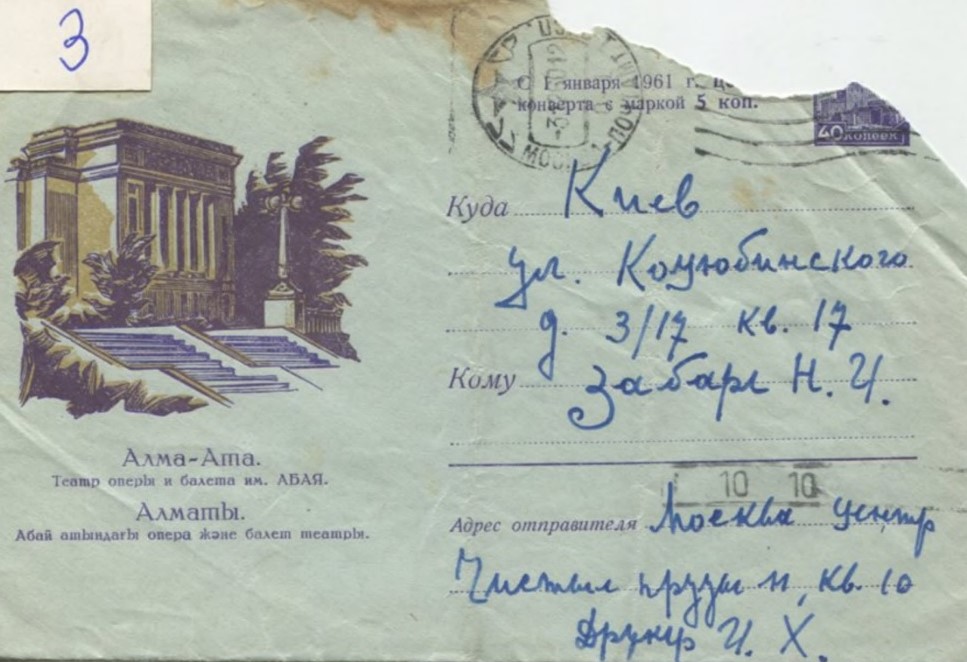 3
С 1 января 1961 г.
конверта с маркой 5 коп.
40 КОПЕЕК
Куда Киев
ул. Коцюбинского
д. 3/17 кв. 17
Кому Забаре Н. И.
Алма-Ата.
Театр оперы и балета им. АБАЯ.
Алматы.
Абай атындағы опера және балет театры.
10 10
Адрес отправителя Москва Центр
Чистые пруды 11, кв. 10
Друкер И. Х.